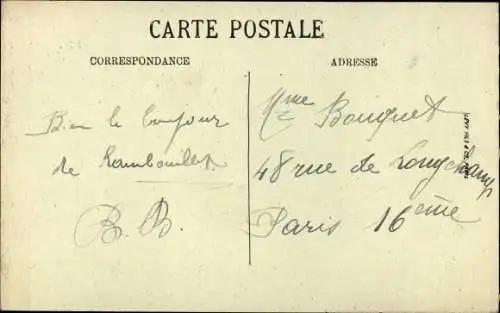 CARTE POSTALE
CORRESPONDANCE
ADRESSE
Bien le bonjour
de Rambouillet
B. B.
Mme Bouquet
48 rue de Longchamp
Paris 16ème